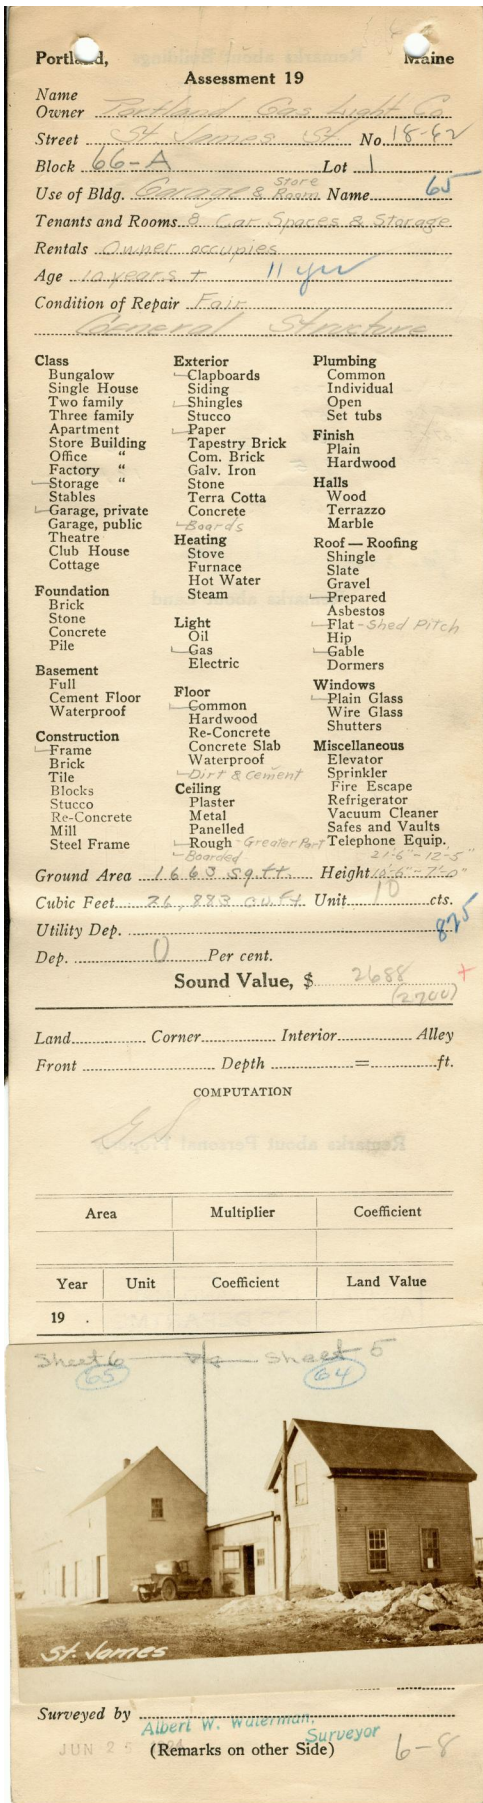 Portland, Maine
Assessment 19
Name
Owner Portland Gas Light Co
Street St. James St. No. 18-62
Block 66-A Lot 1
Use of Bldg. Garage & Store Room Name 65
Tenants and Rooms 8 Car Spaces & Storage
Rentals Owner occupies
Age 10 years + 11 yrs
Condition of Repair Fair
General Structure
Class
Bungalow
Single House
Two family
Three family
Apartment
Store Building
Office "
Factory "
Storage "
Stables
Garage, private
Garage, public
Theatre
Club House
Cottage
Foundation
Brick
Stone
Concrete
Pile
Basement
Full
Cement Floor
Waterproof
Construction
Frame
Brick
Tile
Blocks
Stucco
Re-Concrete
Mill
Steel Frame
Exterior
Clapboards
Siding
Shingles
Stucco
Paper
Tapestry Brick
Com. Brick
Galv. Iron
Stone
Terra Cotta
Concrete
Boards
Heating
Stove
Furnace
Hot Water
Steam
Light
Oil
Gas
Electric
Floor
Common
Hardwood
Re-Concrete
Concrete Slab
Waterproof
Dirt & Cement
Ceiling
Plaster
Metal
Panelled
Rough - Greater Part
Boarded
Plumbing
Common
Individual
Open
Set tubs
Finish
Plain
Hardwood
Halls
Wood
Terrazzo
Marble
Roof — Roofing
Shingle
Slate
Gravel
Prepared
Asbestos
Flat - Shed Pitch
Hip
Gable
Dormers
Windows
Plain Glass
Wire Glass
Shutters
Miscellaneous
Elevator
Sprinkler
Fire Escape
Refrigerator
Vacuum Cleaner
Safes and Vaults
Telephone Equip.
21'-6" - 12'-5"
Ground Area 1663 sq. ft. Height 10'-6" - 7'-0"
Cubic Feet 26,883 cu. ft. Unit 10 cts.
Utility Dep. 825
Dep. 0 Per cent.
Sound Value, $ 2688 +
(2700)
Land Corner Interior Alley
Front Depth = ft.
COMPUTATION
Area Multiplier Coefficient
Year Unit Coefficient Land Value
19 .
Sheet 6 Sheet 5
65 64
St. James
Surveyed by Albert W. Waterman, Surveyor
JUN 25
(Remarks on other Side) 6-8